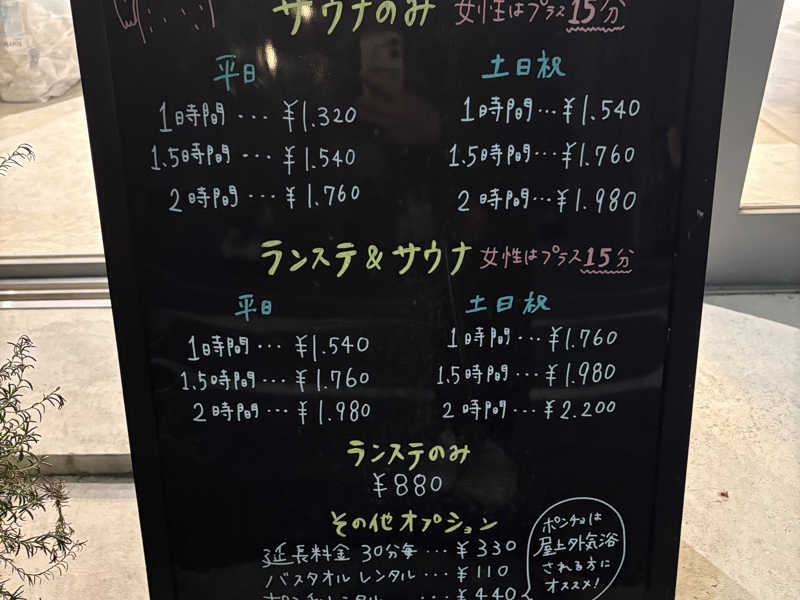 サウナのみ 女性はプラス15分
平日
1時間・・・¥1.320
1.5時間・・・¥1.540
2時間・・・¥1.760
土日祝
1時間・・・¥1.540
1.5時間・・・¥1.760
2時間・・・¥1.980
ランステ&サウナ 女性はプラス15分
平日
1時間・・・¥1.540
1.5時間・・・¥1.760
2時間・・・¥1.980
土日祝
1時間・・・¥1.760
1.5時間・・・¥1.980
2時間・・・¥2.200
ランステのみ
¥880
その他オプション
延長料金 30分毎・・・¥330
バスタオルレンタル・・・¥110
ポンチョレンタル・・・¥440
ポンチョは
屋上外気浴
される方に
オススメ!